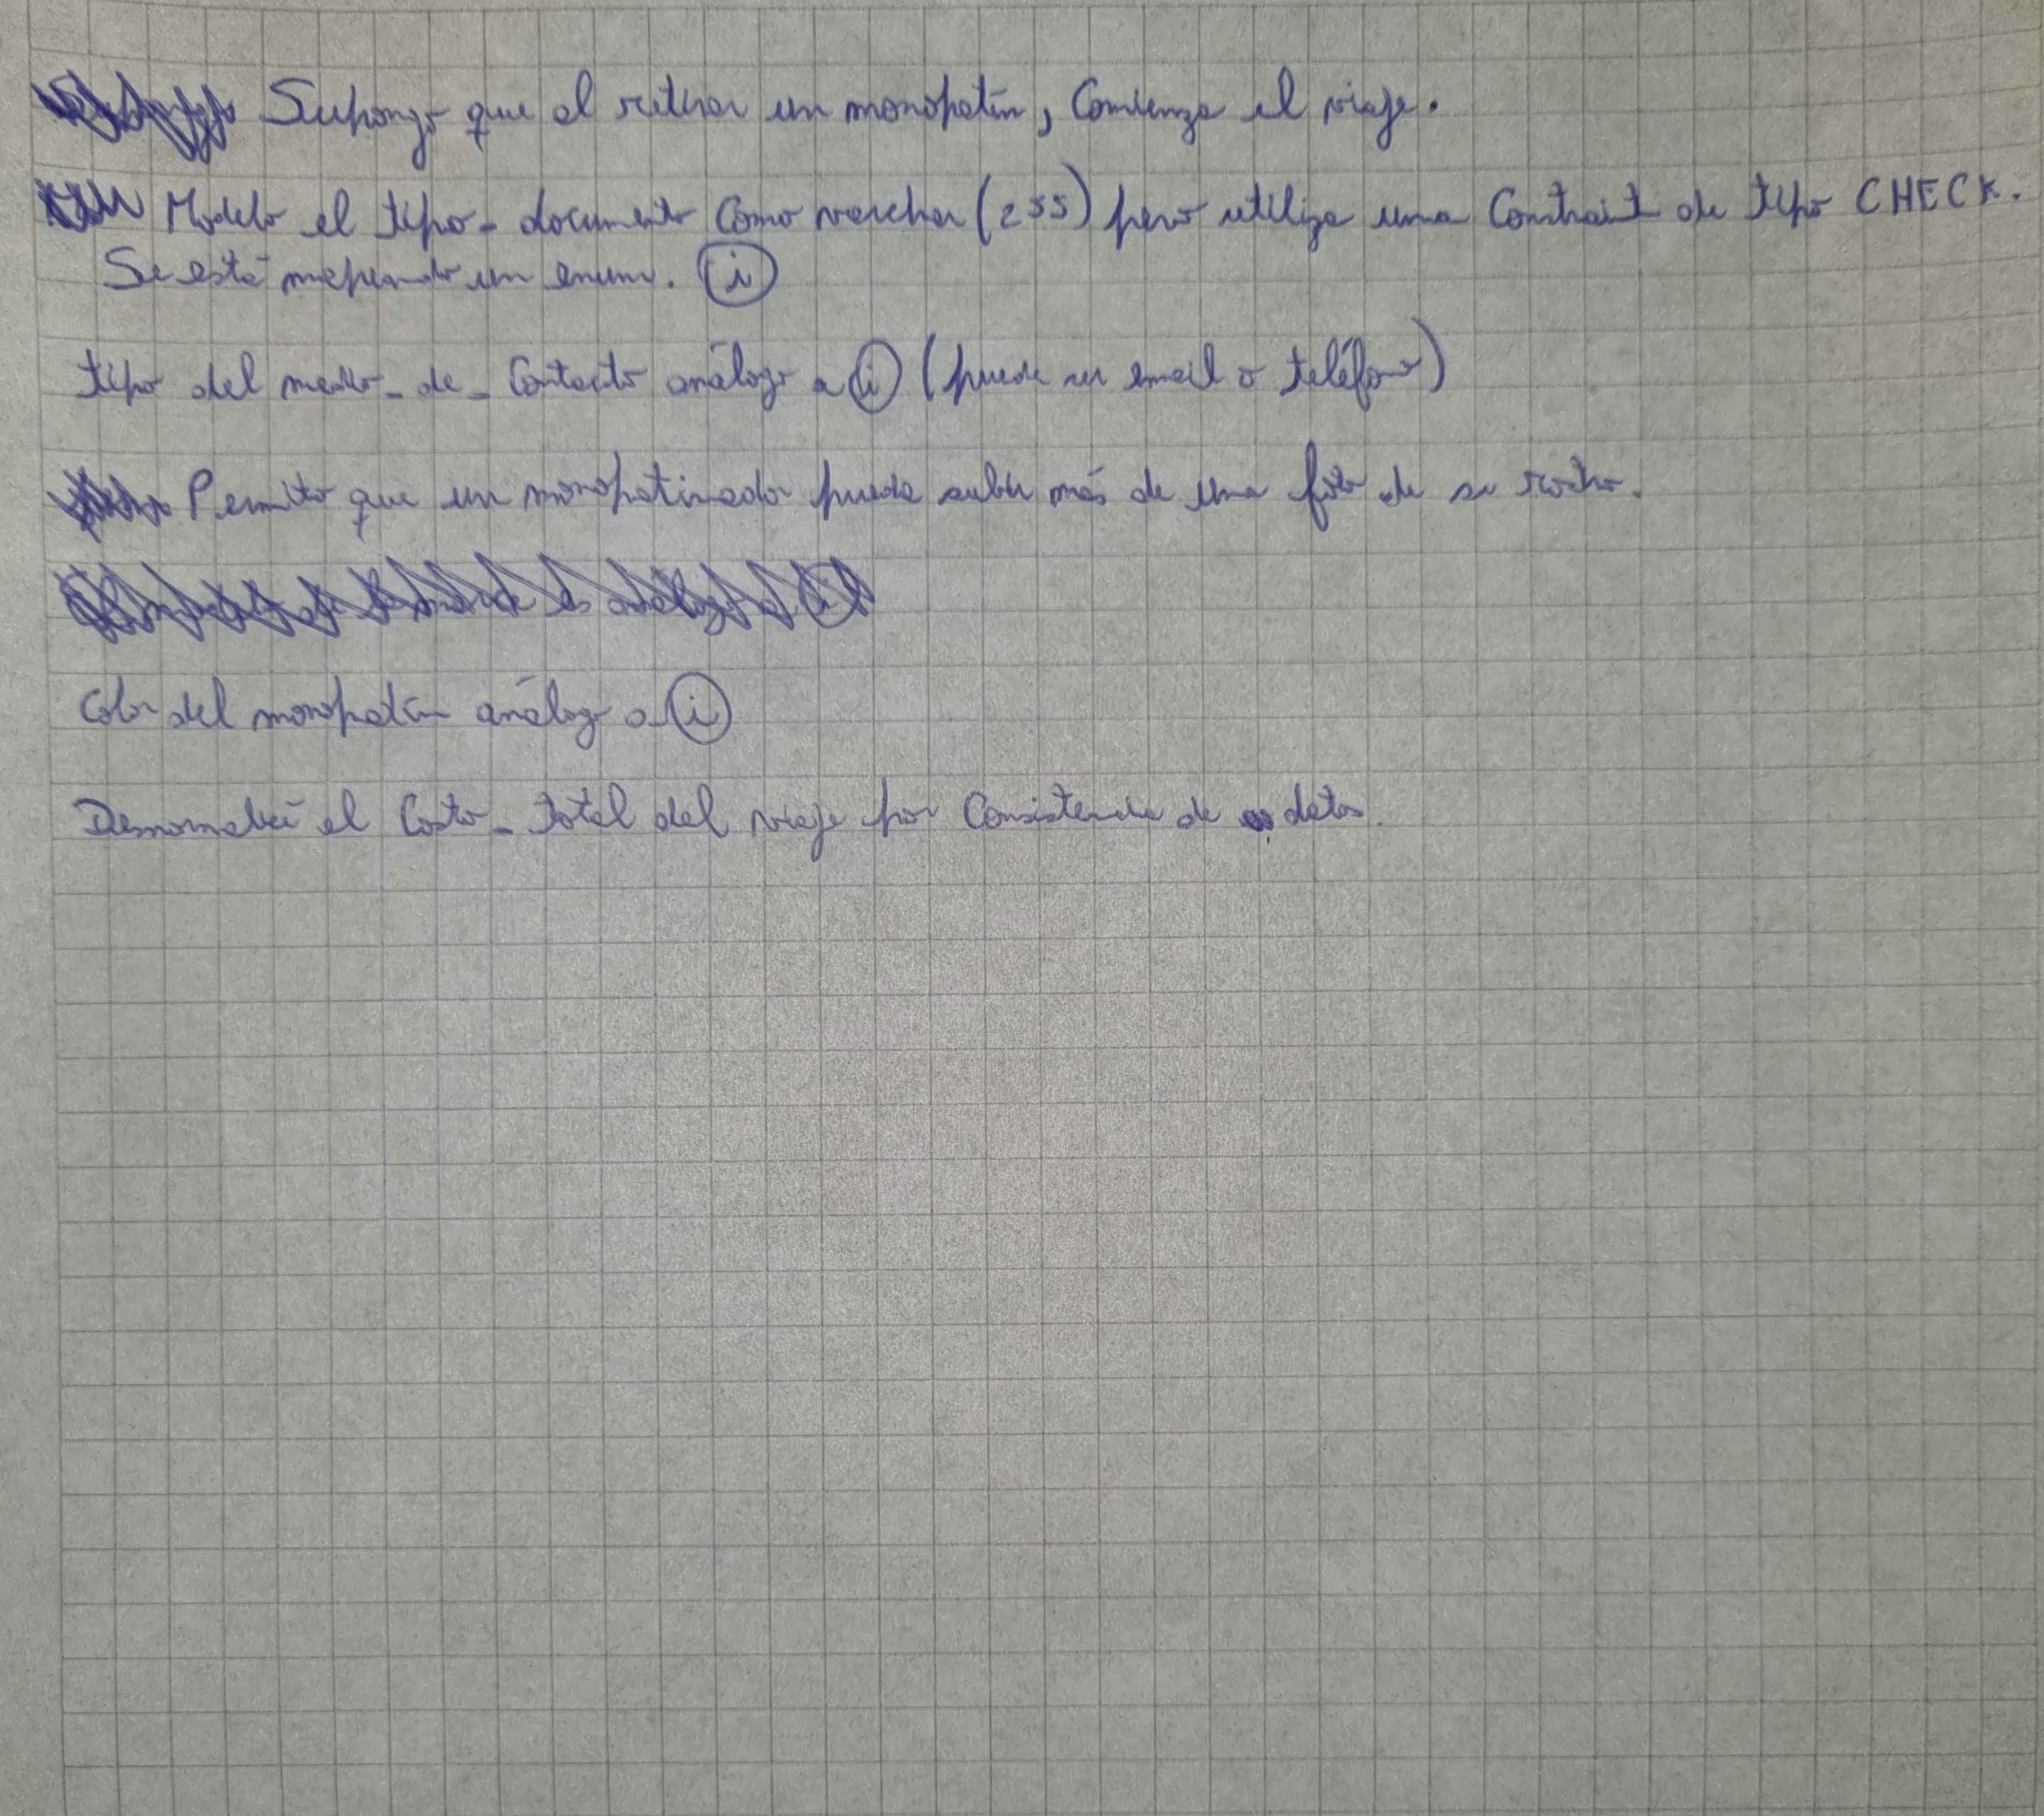 Supongo que al retirar un monopatín, comienza el viaje.
Modelo el tipo_documento como varchar(255) pero utiliza una constraint de tipo CHECK.
Se está mapeando un enum. (i)
tipo del medio_de_contacto análogo a (i) (puede ser email o teléfono)
Permito que un monopatinador pueda subir más de una foto de su rostro.
color del monopatín análogo a (i)
Desnormalicé el costo_total del viaje por consistencia de datos.